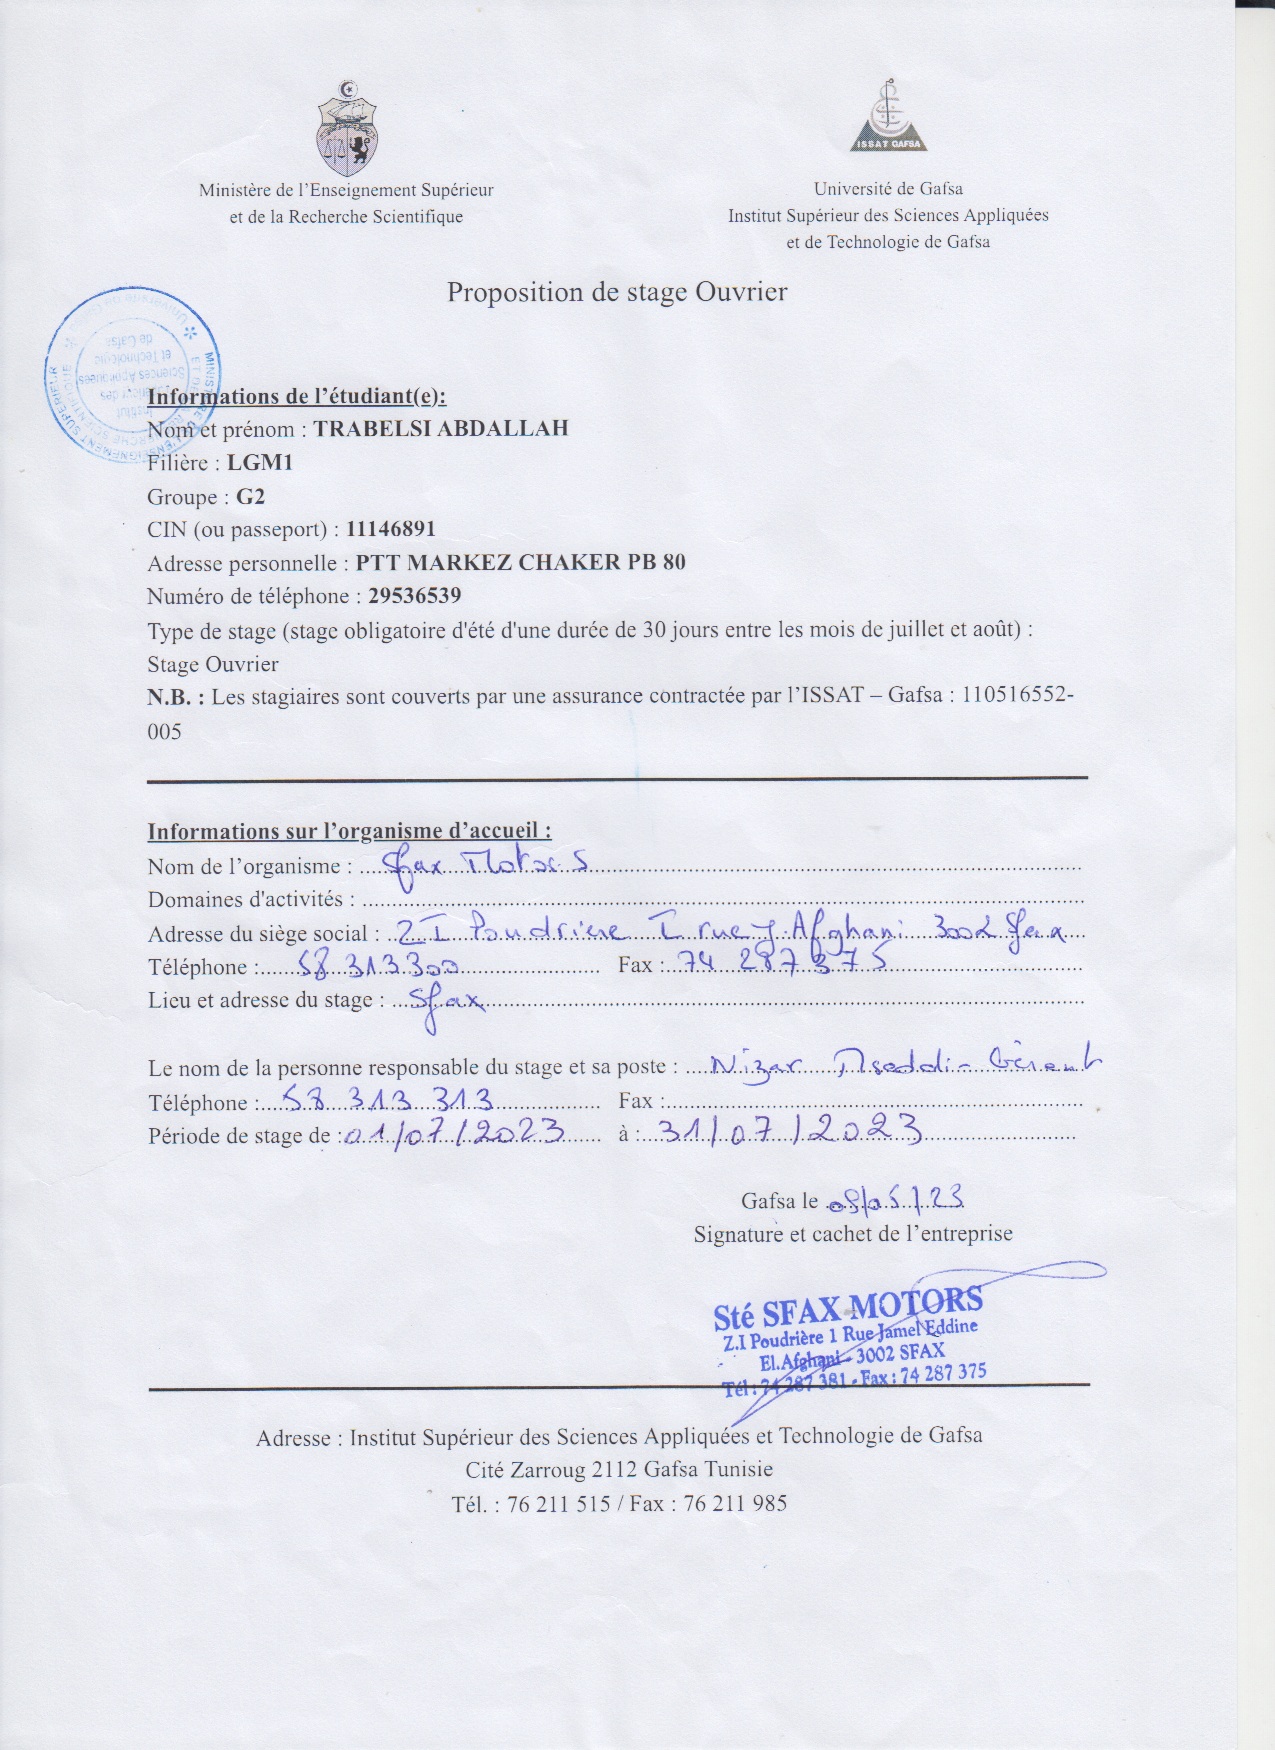 Ministère de l'Enseignement Supérieur
et de la Recherche Scientifique
ISSAT GAFSA
Université de Gafsa
Institut Supérieur des Sciences Appliquées
et de Technologie de Gafsa
Proposition de stage Ouvrier
MINISTERE DE L'ENSEIGNEMENT SUPERIEUR
ET DE LA RECHERCHE SCIENTIFIQUE
Institut
Supérieur des
Sciences Appliquées
et Technologie
de Gafsa
Informations de l'étudiant(e):
Nom et prénom : TRABELSI ABDALLAH
Filière : LGM1
Groupe : G2
CIN (ou passeport) : 11146891
Adresse personnelle : PTT MARKEZ CHAKER PB 80
Numéro de téléphone : 29536539
Type de stage (stage obligatoire d'été d'une durée de 30 jours entre les mois de juillet et août) :
Stage Ouvrier
N.B. : Les stagiaires sont couverts par une assurance contractée par l'ISSAT – Gafsa : 110516552-
005
Informations sur l'organisme d'accueil :
Nom de l'organisme : Sfax Motors
Domaines d'activités :
Adresse du siège social : ZI Poudrière I rue J Afghani 3002 Sfax
Téléphone : 58 313 300 Fax : 74 287 375
Lieu et adresse du stage : Sfax
Le nom de la personne responsable du stage et sa poste : Nizar - Gérant
Téléphone : 58 313 313 Fax :
Période de stage de : 01/07/2023 à : 31/07/2023
Gafsa le /05/23
Signature et cachet de l'entreprise
Sté SFAX MOTORS
Z.I Poudrière 1 Rue Jamel Eddine
El.Afghani - 3002 SFAX
Tél : 74 287 381 - Fax : 74 287 375
Adresse : Institut Supérieur des Sciences Appliquées et Technologie de Gafsa
Cité Zarroug 2112 Gafsa Tunisie
Tél. : 76 211 515 / Fax : 76 211 985